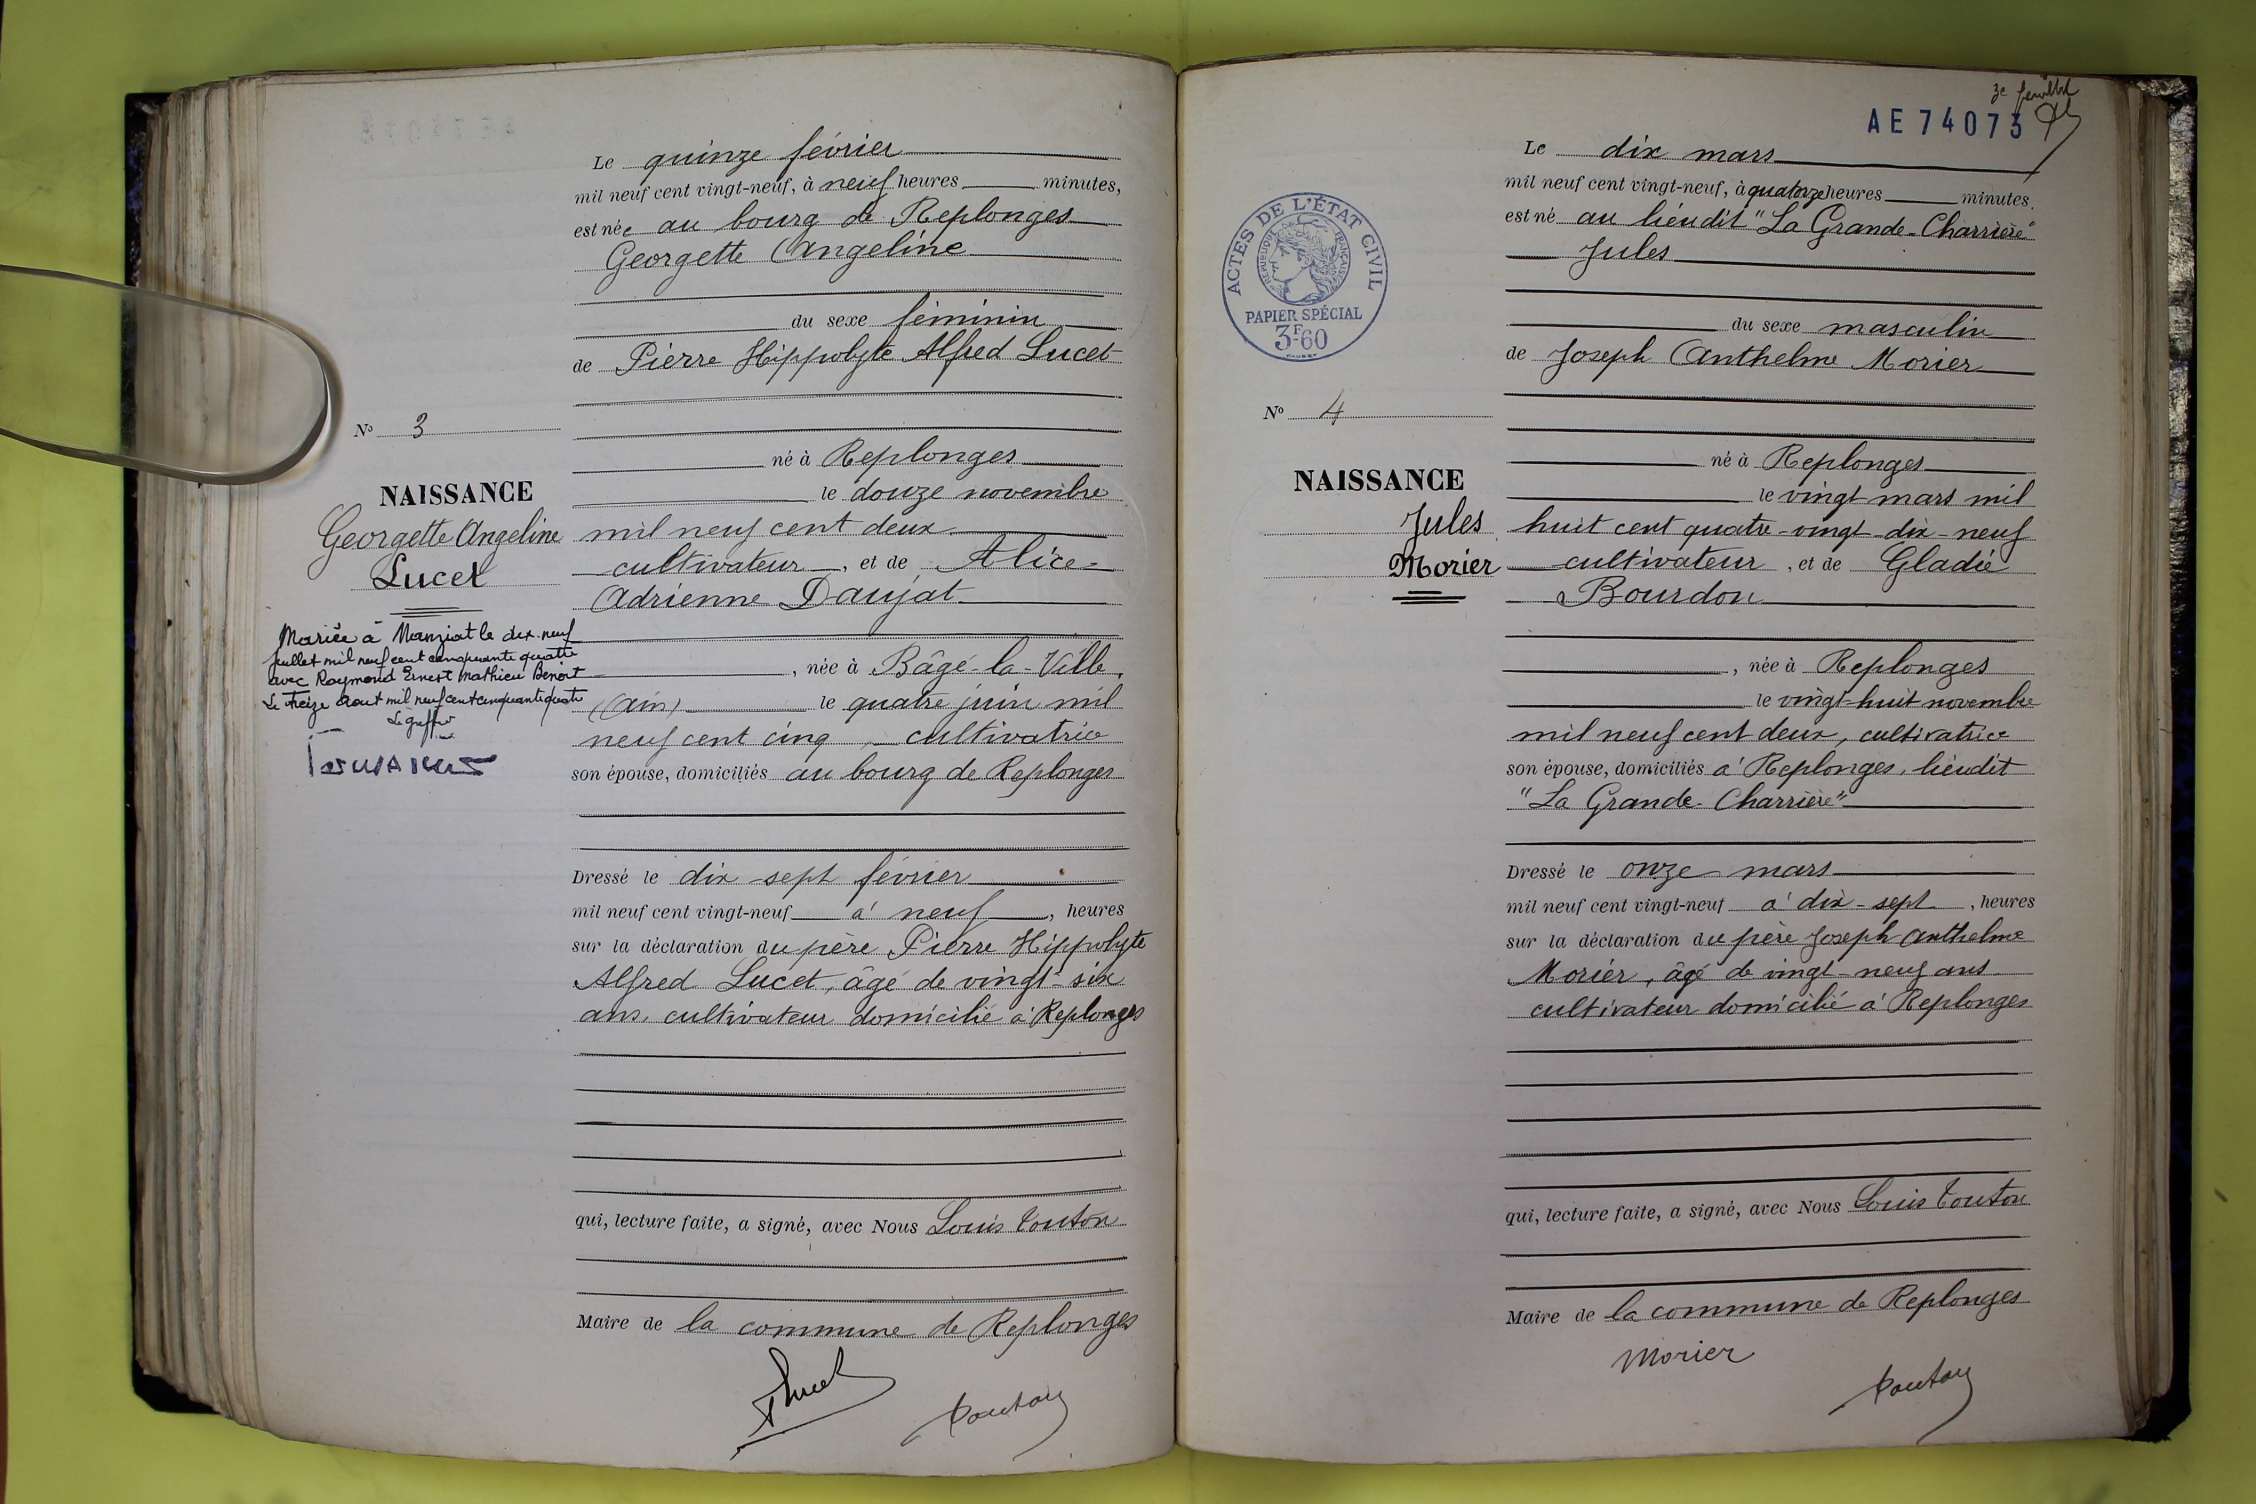 Le quinze février
mil neuf cent vingt-neuf, à neuf heures minutes,
est née au bourg de Replonges
Georgette Angeline
du sexe féminin
de Pierre Hippolyte Alfred Lucet
N° 3
né à Replonges
NAISSANCE
le douze novembre
Georgette Angeline
mil neuf cent deux
Lucet
cultivateur, et de Alice-
Adrienne Daujat
Mariée à Manziat le dix-neuf
juillet mil neuf cent cinquante quatre
avec Raymond Ernest Mathieu Benoit
Le treize aout mil neuf cent cinquante quatre
Le greffier
, née à Bâgé-la-Ville,
(Ain) le quatre juin mil
neuf cent cinq, cultivatrice
son épouse, domiciliés au bourg de Replonges
Dressé le dix-sept février
mil neuf cent vingt-neuf à neuf, heures
sur la déclaration du père Pierre Hippolyte
Alfred Lucet, âgé de vingt-six
ans, cultivateur domicilié à Replonges
qui, lecture faite, a signé, avec Nous Louis Touton
Maire de la commune de Replonges
Lucet
Touton
3e feuillet
AE 74073
Le dix mars
mil neuf cent vingt-neuf, à quatorze heures minutes.
est né au lieudit "La Grande-Charrière"
Jules
ACTES DE L'ÉTAT CIVIL
RÉPUBLIQUE FRANÇAISE
PAPIER SPÉCIAL
3F60
du sexe masculin
de Joseph Anthelme Morier
N° 4
né à Replonges
NAISSANCE
le vingt mars mil
Jules
huit cent quatre-vingt-dix-neuf
Morier
cultivateur, et de Gladie
Bourdon
, née à Replonges
le vingt-huit novembre
mil neuf cent deux, cultivatrice
son épouse, domiciliés à Replonges, lieudit
"La Grande-Charrière"
Dressé le onze mars
mil neuf cent vingt-neuf à dix-sept, heures
sur la déclaration du père Joseph Anthelme
Morier, âgé de vingt-neuf ans
cultivateur domicilié à Replonges
qui, lecture faite, a signé, avec Nous Louis Touton
Maire de la commune de Replonges
Morier
Touton